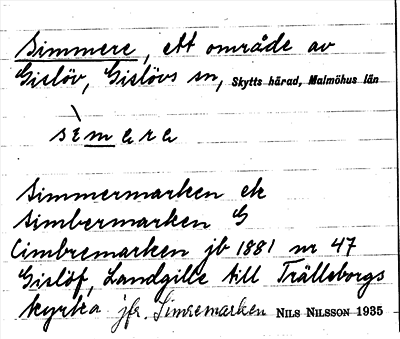 Simmere, ett område av
Gislöv, Gislövs sn, Skytts härad, Malmöhus län
sìmara
Simmermarken ek
Simbermarken G
Cimbremarken jb 1881 nr 47
Gislöf, Landgille till Trälleborgs
kyrka jfr. Simremarken NILS NILSSON 1935